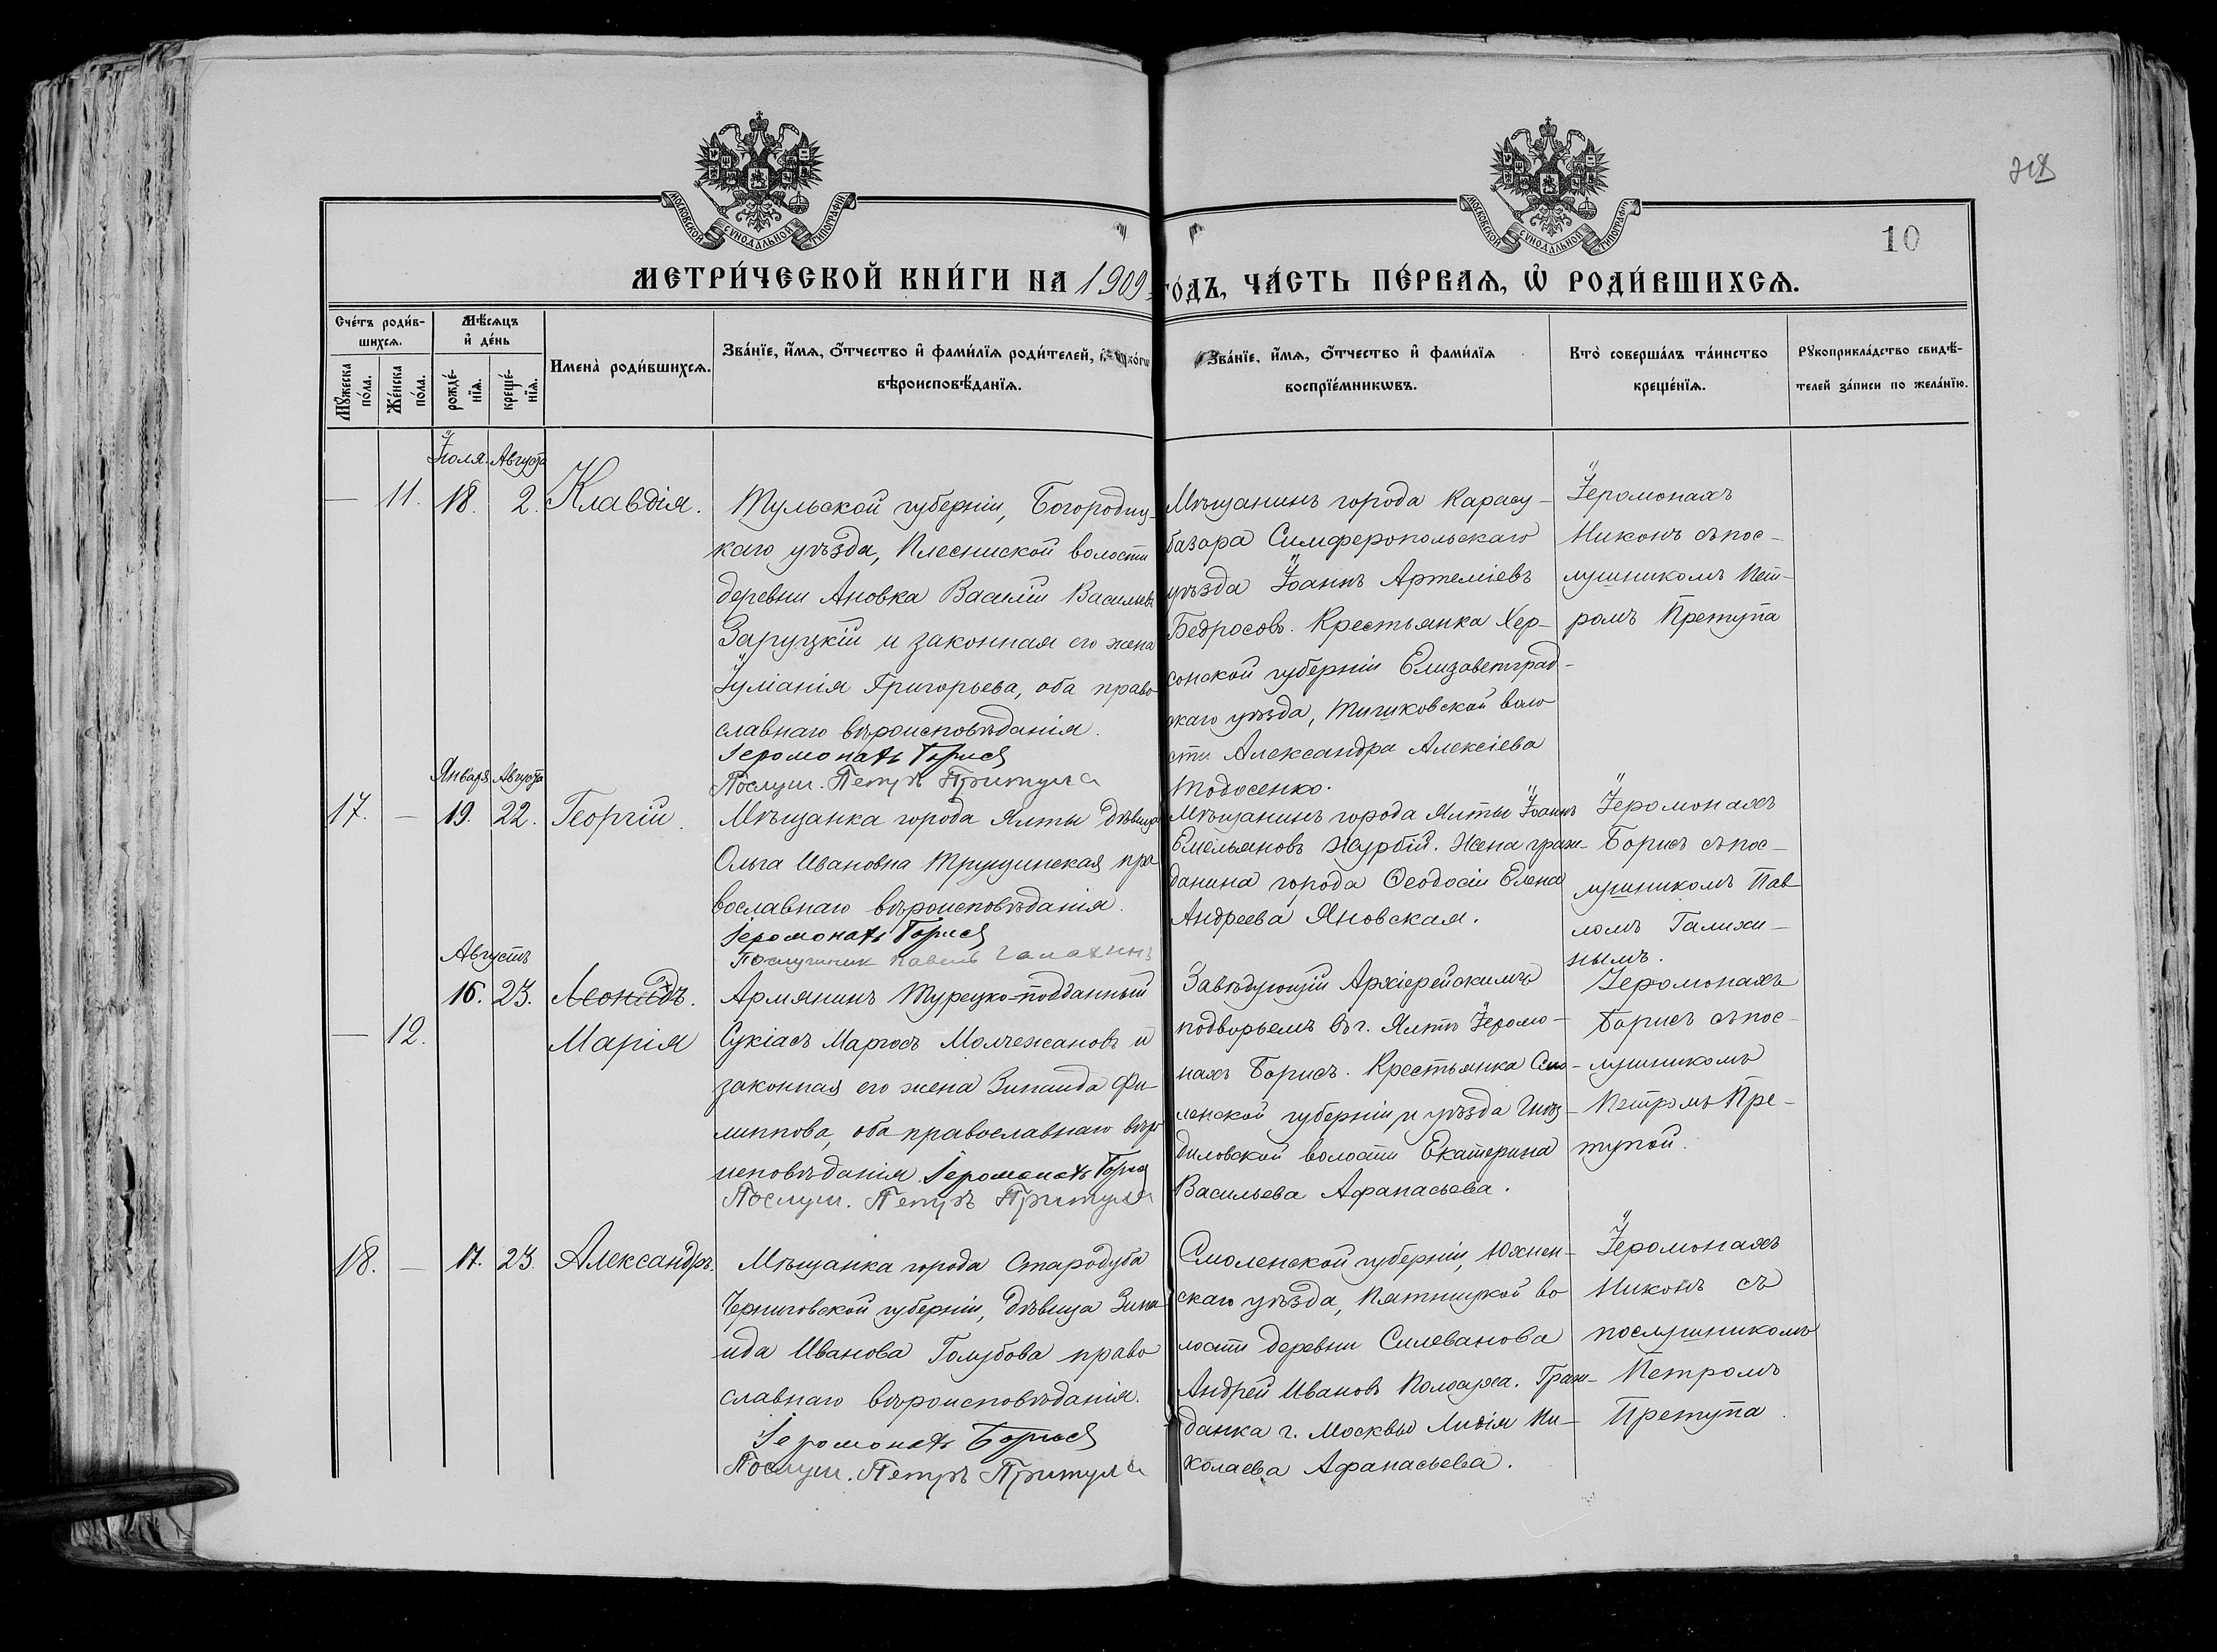 МОСКОВСКОЙ СѴНОДАЛЬНОЙ ТИПОГРАФІИ
МОСКОВСКОЙ СѴНОДАЛЬНОЙ ТИПОГРАФІИ
10
МЕТРИ́ЧЕСКОЙ КНИ́ГИ НА 1909 ГО́ДЪ, ЧА́СТЬ ПЕ́РВАѦ, Ѡ҆ РОДИ́ВШИХСѦ.
Сче́тъ роди́в-
шихсѧ.
Мꙋ́жеска по́ла.
Же́нска по́ла.
Мѣ́сѧцъ
и҆ де́нь
рожде́-
нїѧ.
креще́-
нїѧ.
Имена̀ роди́вшихсѧ.
Зва́нїе, и҆́мѧ, ѻ҆́тчество и҆ фами́лїѧ роди́телей, и҆ како́гѡ
вѣроисповѣ́данїѧ.
Зва́нїе, и҆́мѧ, ѻ҆́тчество и҆ фами́лїѧ
воспрїе́мникѡвъ.
Кто̀ соверша́лъ та́инство
креще́нїѧ.
Рꙋкоприкла́дство свидѣ́-
телей за́писи по жела́нїю.
Іюля. Августа
— 11. 18. 2. Клавдія.
Тульской губерніи, Богородиц-
каго уѣзда, Плеснской волости
деревни Ановка Василій Васильевъ
Заруцкій и законная его жена
Іуліанія Григорьева, оба право
славнаго вѣроисповѣданія.
Іеромонахъ Борисъ
Послуш. Петръ Притула
Мѣщанинъ города Карасу-
базара Симферопольскаго
уѣзда Іоаннъ Артеміевъ
Бедросовъ. Крестьянка Хер-
сонской губерніи Елизаветград-
скаго уѣзда, Тишковской воло
сти Александра Алексіева
Тодосенко.
Іеромонахъ
Никонъ съ пос-
лушникомъ Пет-
ромъ Претупа
Января Августа
17. — 19. 22. Георгій.
Мѣщанка города Ялты дѣвица
Ольга Ивановна Трущинская пра
вославнаго вѣроисповѣданія.
Іеромонахъ Борисъ
Послушник Павелъ Галахинъ
Мѣщанинъ города Ялты Іоаннъ
Емельяновъ Журбій. Жена граж-
данина города Ѳеодосіи Елена
Андреева Яновская.
Іеромонахъ
Борисъ съ пос-
лушникомъ Пав-
ломъ Галихи-
нымъ.
Августъ
16. 23. Леонидъ.
— 12. Марія
Армянинъ Турецко-подданный
Сукіасъ Маргосъ Молчежановъ и
законная его жена Зинаида Фи-
липпова, оба православнаго вѣро
исповѣданія. Іеромонахъ Борисъ
Послуш. Петръ Притула
Завѣдующій Архіерейскимъ
подворьемъ въ г. Ялтѣ Іеромо-
нахъ Борисъ. Крестьянка Смо-
ленской губерніи и уѣзда Гнѣз-
диловской волости Екатерина
Васильева Афанасьева.
Іеромонахъ
Борисъ съ пос-
лушникомъ
Петромъ Пре-
тупой.
18. — 17. 23. Александръ.
Мѣщанка города Стародуба
Черниговской губерніи, дѣвица Зина
ида Иванова Голубова право
славнаго вѣроисповѣданія.
Іеромонахъ Борисъ
Послуш. Петръ Притула
Смоленской губерніи, Юхнен-
скаго уѣзда, Пятницкой во
лости деревни Силеванова
Андрей Ивановъ. Граж-
данка г. Москвы Лидія Ни-
колаева Афанасьева.
Іеромонахъ
Никонъ съ
послушникомъ
Петромъ
Претупа